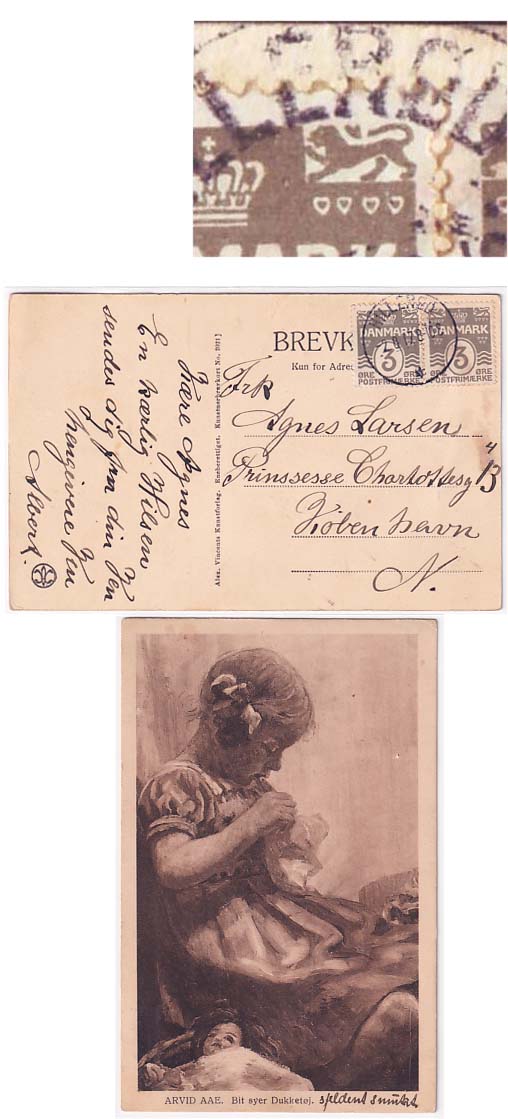 LLERØD
MARK
Kære Agnes
En kærlig Hilsen
sendes dig fra din Ven
hengivene Ven
Albert.
Alex. Vincents Kunstforlag. Eneberettiget. Kunstnerbrevkort No. 202
BREVK
Kun for Adres
DANMARK
3
ØRE
POSTFRIMÆRKE
DANMARK
3
ØRE
POSTFRIMÆRKE
Frk
Agnes Larsen
Prinssesse Charlottesg 13 4
København
N.
ARVID AAE. Bit syer Dukketøj. sjeldent smukt